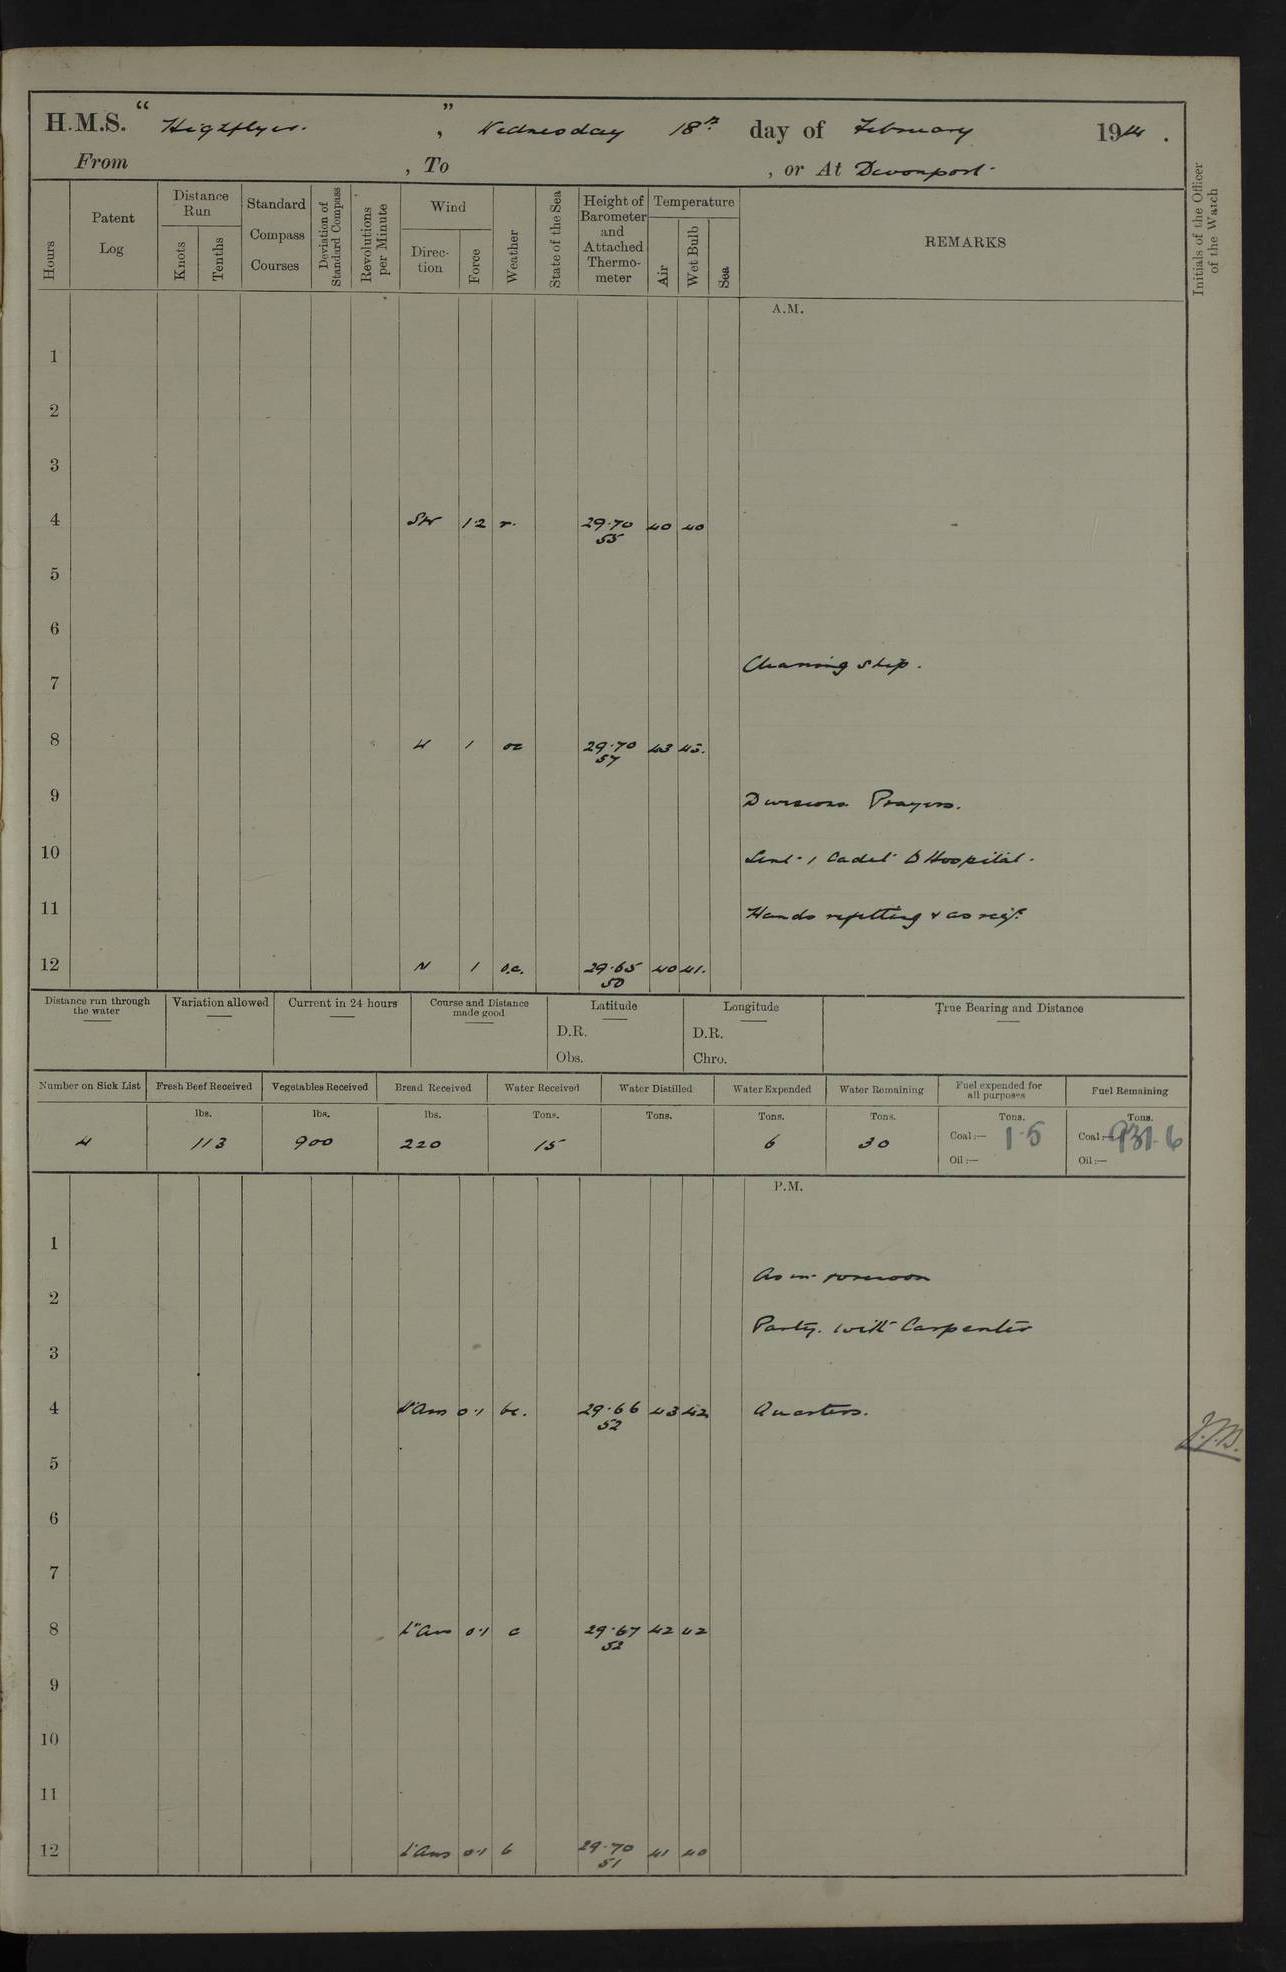 H.M.S. “ Highflyer. ” , Wednesday 18th day of February 1914 .
From , To , or At Devonport.
Hours
Patent Log
Distance Run
Knots
Tenths
Standard Compass Courses
Deviation of Standard Compass
Revolutions per Minute
Wind
Direc-tion
Force
Weather
State of the Sea
Height of Barometer and Attached Thermo-meter
Temperature
Air
Wet Bulb
Sea
REMARKS
Initials of the Officer of the Watch
A.M.
1
2
3
4 SW 1·2 r. 29·70 40 40
55
5
6
Cleaning ship.
7
8 W 1 oc 29·70 43 43.
57
9 Divisions Prayers.
10 Sent 1 Cadet to Hospital.
11 Hands refitting & as req.
12 N 1 o.c. 29·65 40 41.
50
Distance run through the water
Variation allowed
Current in 24 hours
Course and Distance made good
Latitude
D.R.
Obs.
Longitude
D.R.
Chro.
True Bearing and Distance
Number on Sick List Fresh Beef Received Vegetables Received Bread Received Water Received Water Distilled Water Expended Water Remaining Fuel expended for all purposes Fuel Remaining
lbs. lbs. lbs. Tons. Tons. Tons. Tons. Tons. Tons.
4 113 900 220 15 6 30 Coal:— 1·5 Coal:— 931·6
Oil:— Oil:—
P.M.
1
As in forenoon
2
Party with Carpenter
3
4 0·1 bc. 29·66 43 42 Quarters.
52
J.J.B.
5
6
7
8 Lt Airs 0·1 c 29·67 42 42
52
9
10
11
12 Lt Airs 0·1 b 29·70 41 40
51